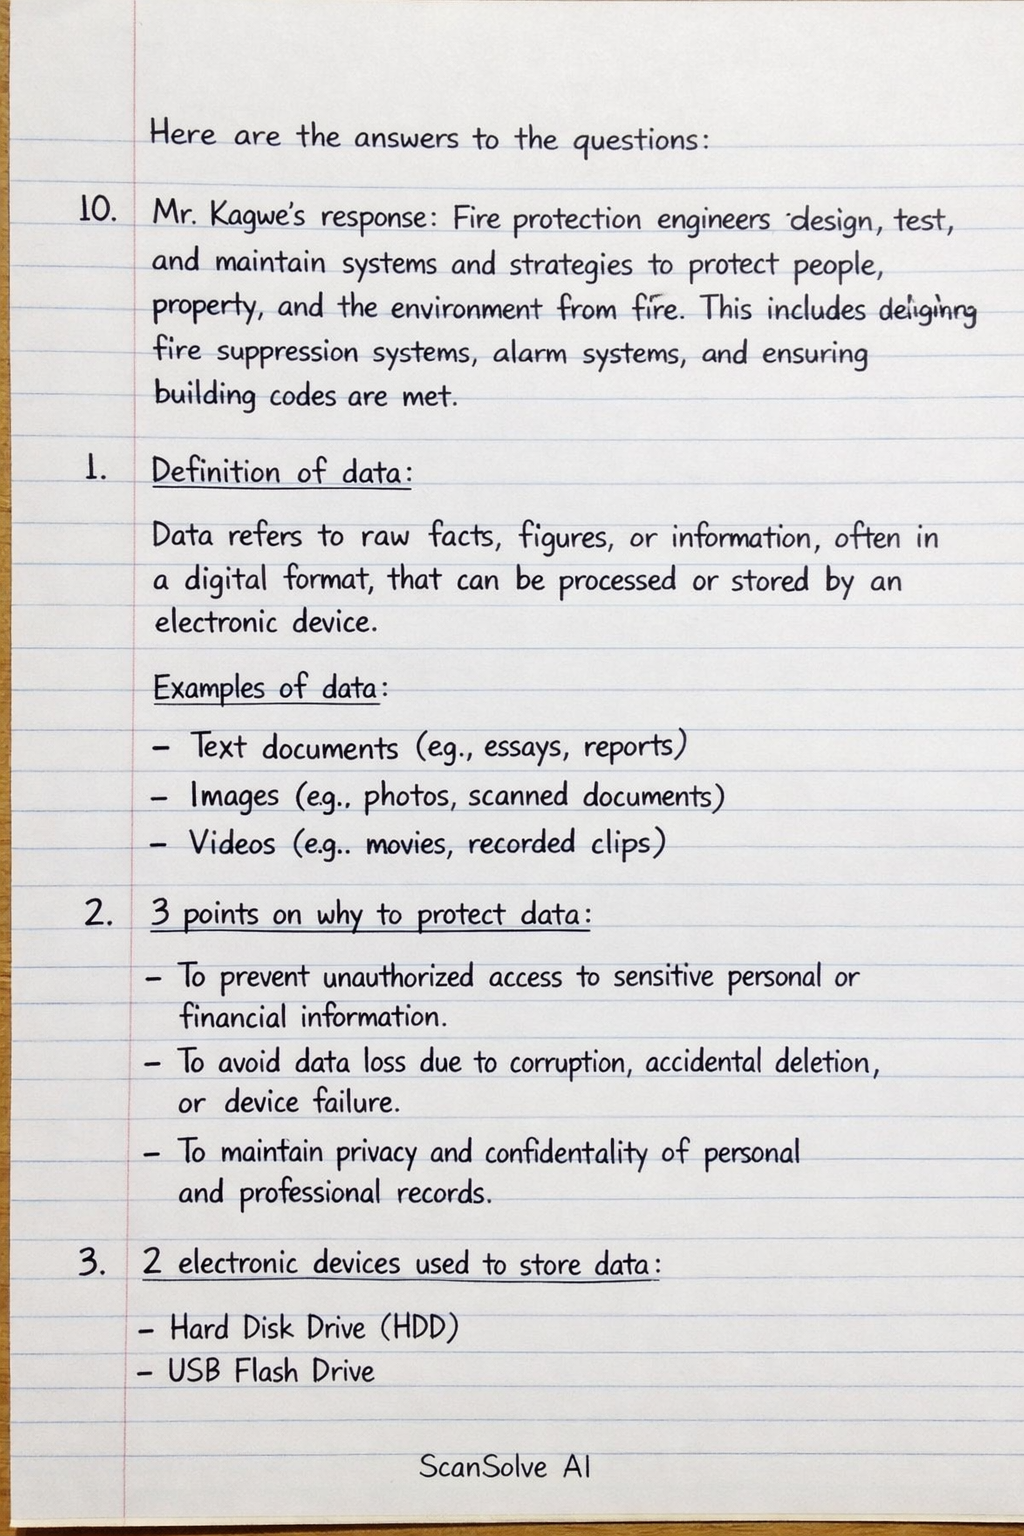 Here are the answers to the questions:
10. Mr. Kagwe's response: Fire protection engineers design, test,
and maintain systems and strategies to protect people,
property, and the environment from fire. This includes
fire suppression systems, alarm systems, and ensuring
building codes are met.
1. Definition of data:
Data refers to raw facts, figures, or information, often in
a digital format, that can be processed or stored by an
electronic device.
Examples of data:
– Text documents (eg., essays, reports)
– Images (e.g., photos, scanned documents)
– Videos (e.g.. movies, recorded clips)
2. 3 points on why to protect data:
– To prevent unauthorized access to sensitive personal or
financial information.
– To avoid data loss due to corruption, accidental deletion,
or device failure.
– To maintain privacy and confidentality of personal
and professional records.
3. 2 electronic devices used to store data:
– Hard Disk Drive (HDD)
– USB Flash Drive
ScanSolve AI